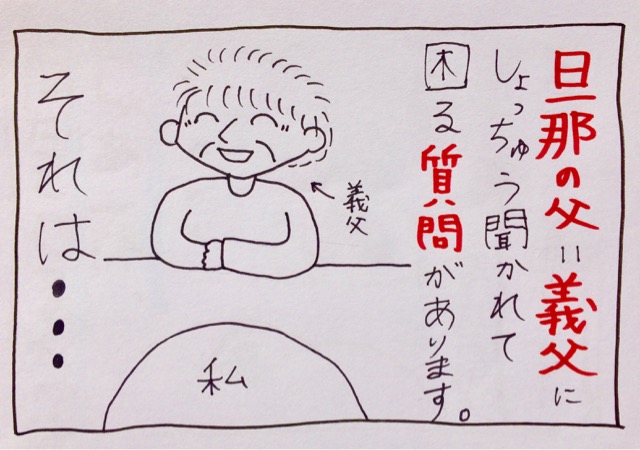 旦那の父=義父に
しょっちゅう聞かれて
困る質問があります。
義父
私
それは・・・